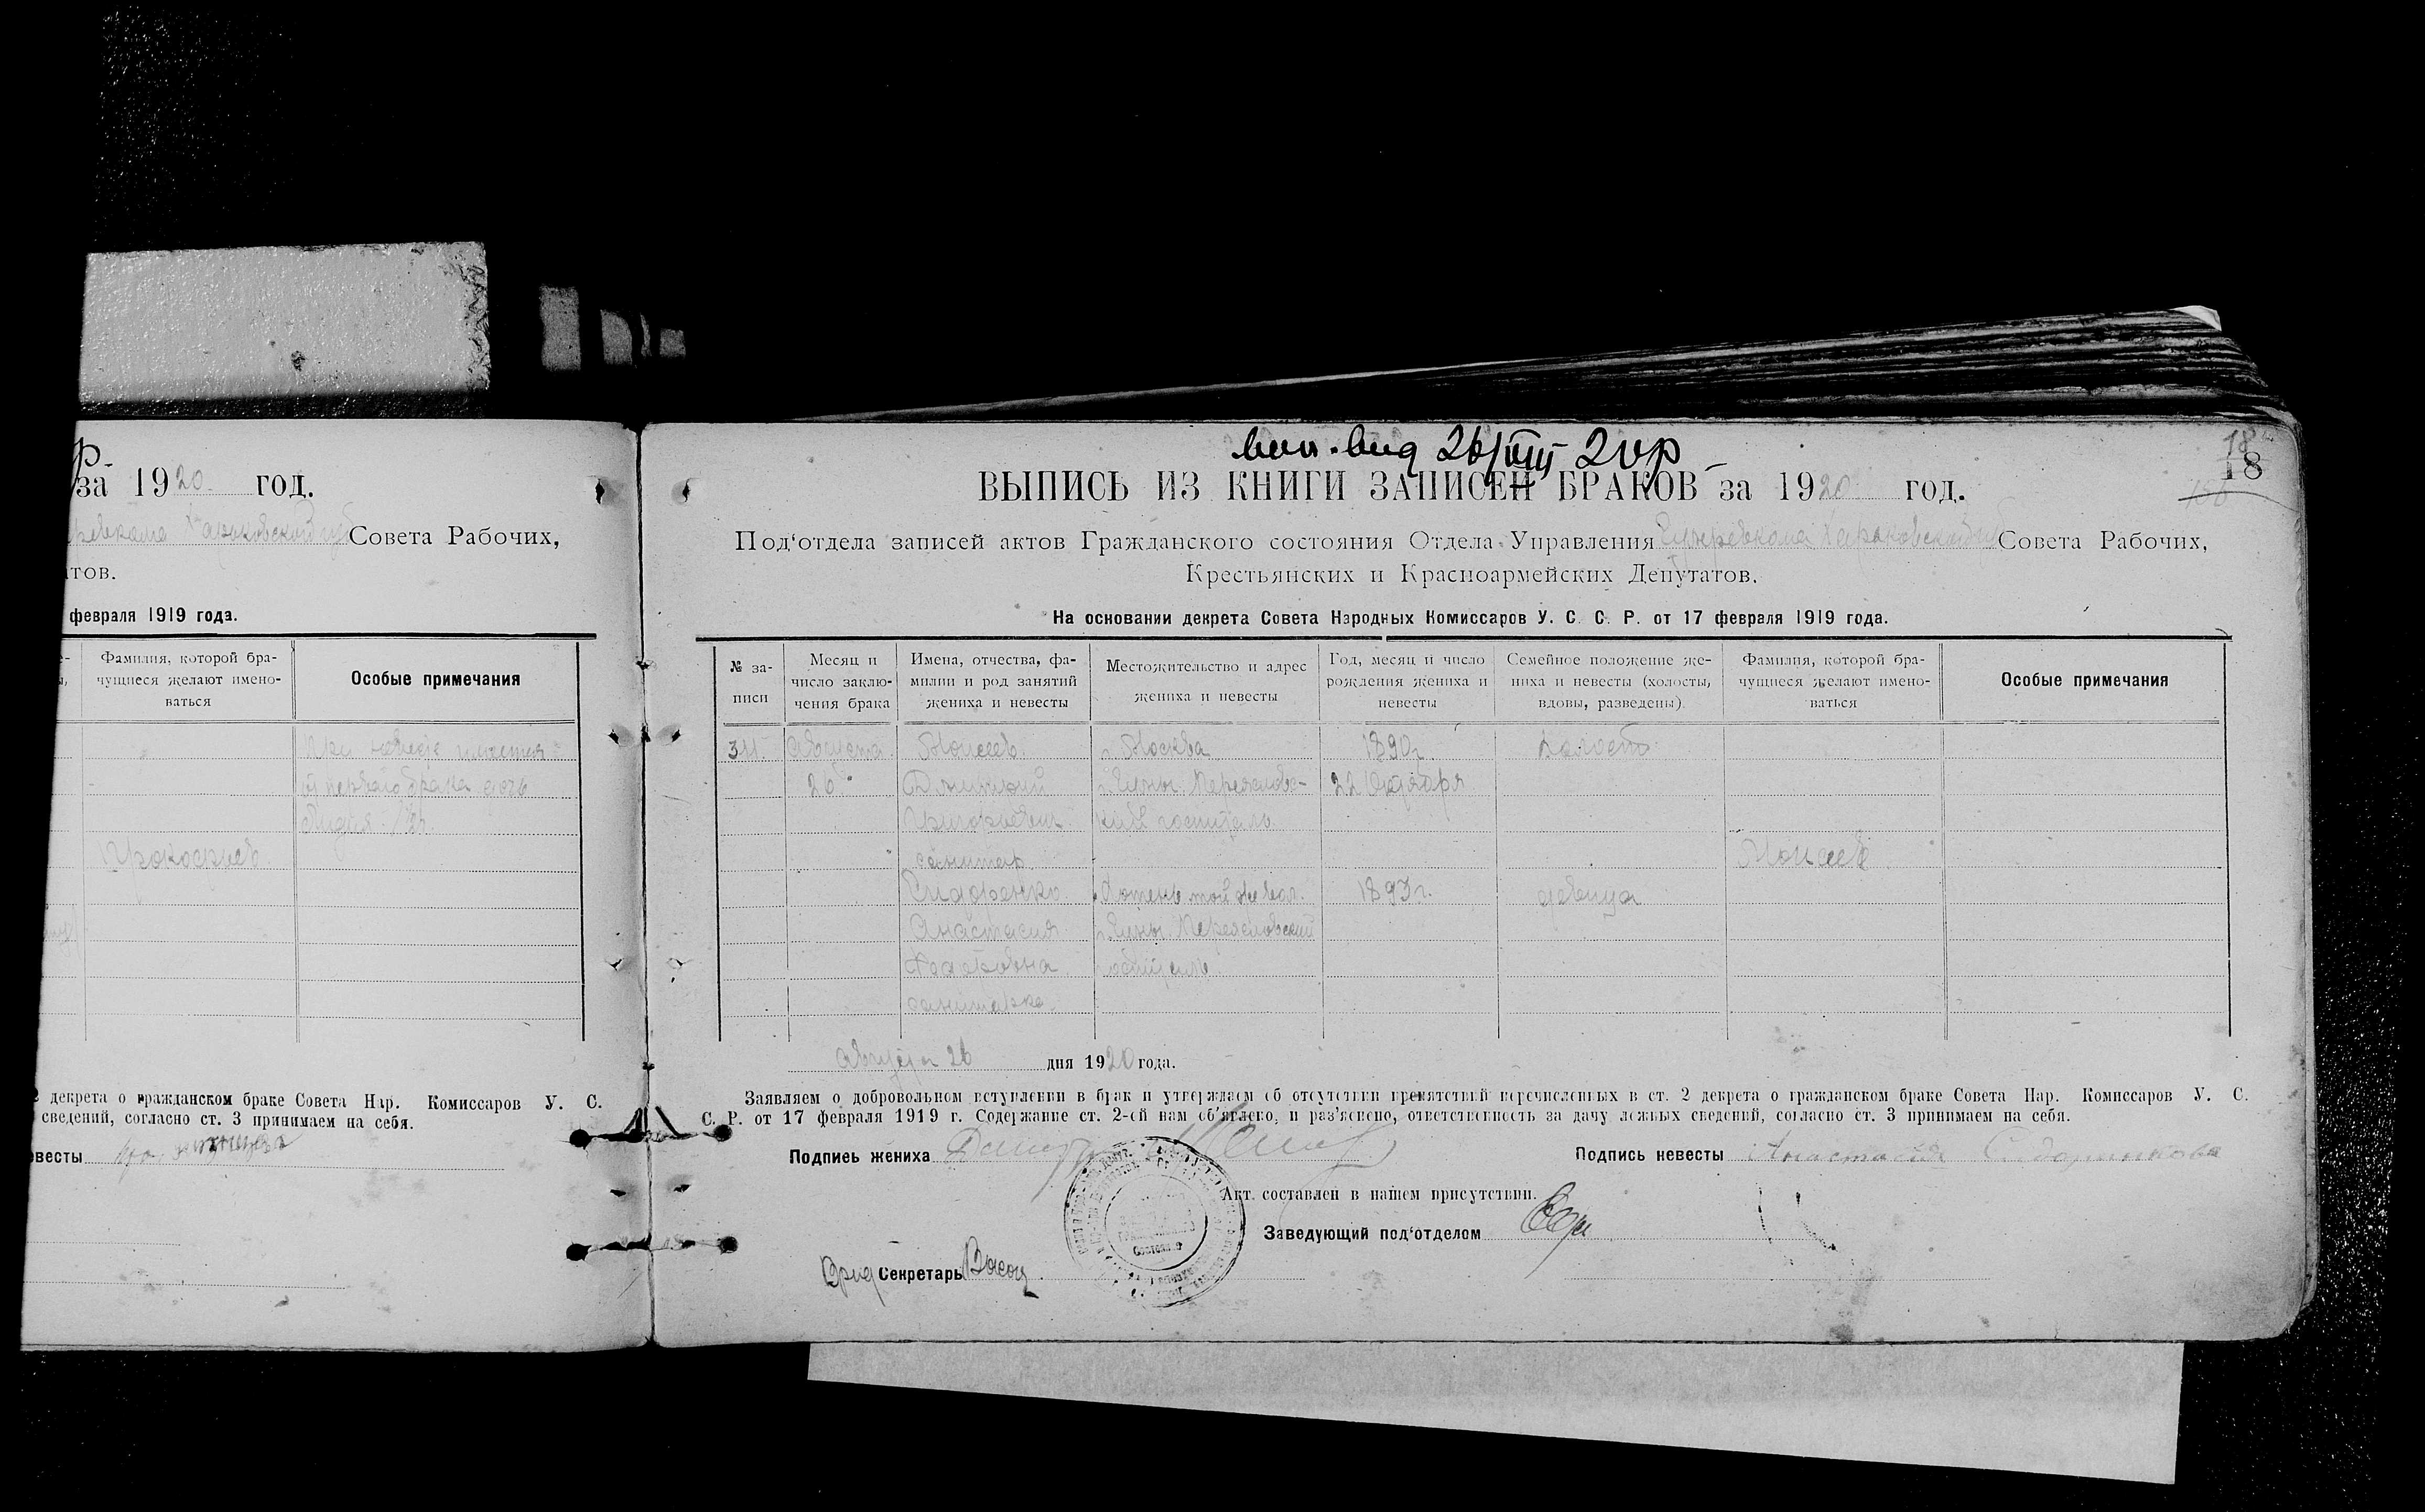 за 1920 год.
Совета Рабочих,
тов.
февраля 1919 года.
Фамилия, которой бра-
чущиеся желают имено-
ваться
Особые примечания
При невесте имеется
от первого брака дочь
Лидия
Прокофьев
декрета о гражданском браке Совета Нар. Комиссаров У. С.
сведений, согласно ст. 3 принимаем на себя.
весты
18
18
26/VIII 20 р
ВЫПИСЬ ИЗ КНИГИ ЗАПИСЕЙ БРАКОВ за 1920 год.
Под‘отдела записей актов Гражданского состояния Отдела Управления Гумревкома Харьковской Совета Рабочих,
Крестьянских и Красноармейских Депутатов.
На основании декрета Совета Народных Комиссаров У. С. С. Р. от 17 февраля 1919 года.
№ за-
писи
Месяц и
число заклю-
чения брака
Имена, отчества, фа-
милии и род занятий
жениха и невесты
Местожительство и адрес
жениха и невесты
Год, месяц и число
рождения жениха и
невесты
Семейное положение же-
ниха и невесты (холосты,
вдовы, разведены)
Фамилия, которой бра-
чущиеся желают имено-
ваться
Особые примечания
34. Августа Моисеев г. Москва 1890 г. холост
26 Дмитрий г. Сумы. Переяслово- 22 Октября
Григорьевич кий госпиталь
санитар Моисеев
Сидоренко Хотень той же вол. 1893 г. девица
Анастасия г. Сумы. Переясловский
Федоровна госпиталь
санитарка
Августа 26 дня 1920 года.
Заявляем о добровольном вступлении в брак и утверждаем об отсутствии препятствий перечисленных в ст. 2 декрета о гражданском браке Совета Нар. Комиссаров У. С.
С. Р. от 17 февраля 1919 г. Содержание ст. 2-ой нам об‘явлено, и раз‘яснено, ответственность за дачу ложных сведений, согласно ст. 3 принимаем на себя.
Подпись жениха
Подпись невесты Анастасия
Акт составлен в нашем присутствии.
Заведующий под‘отделом
Врид Секретарь